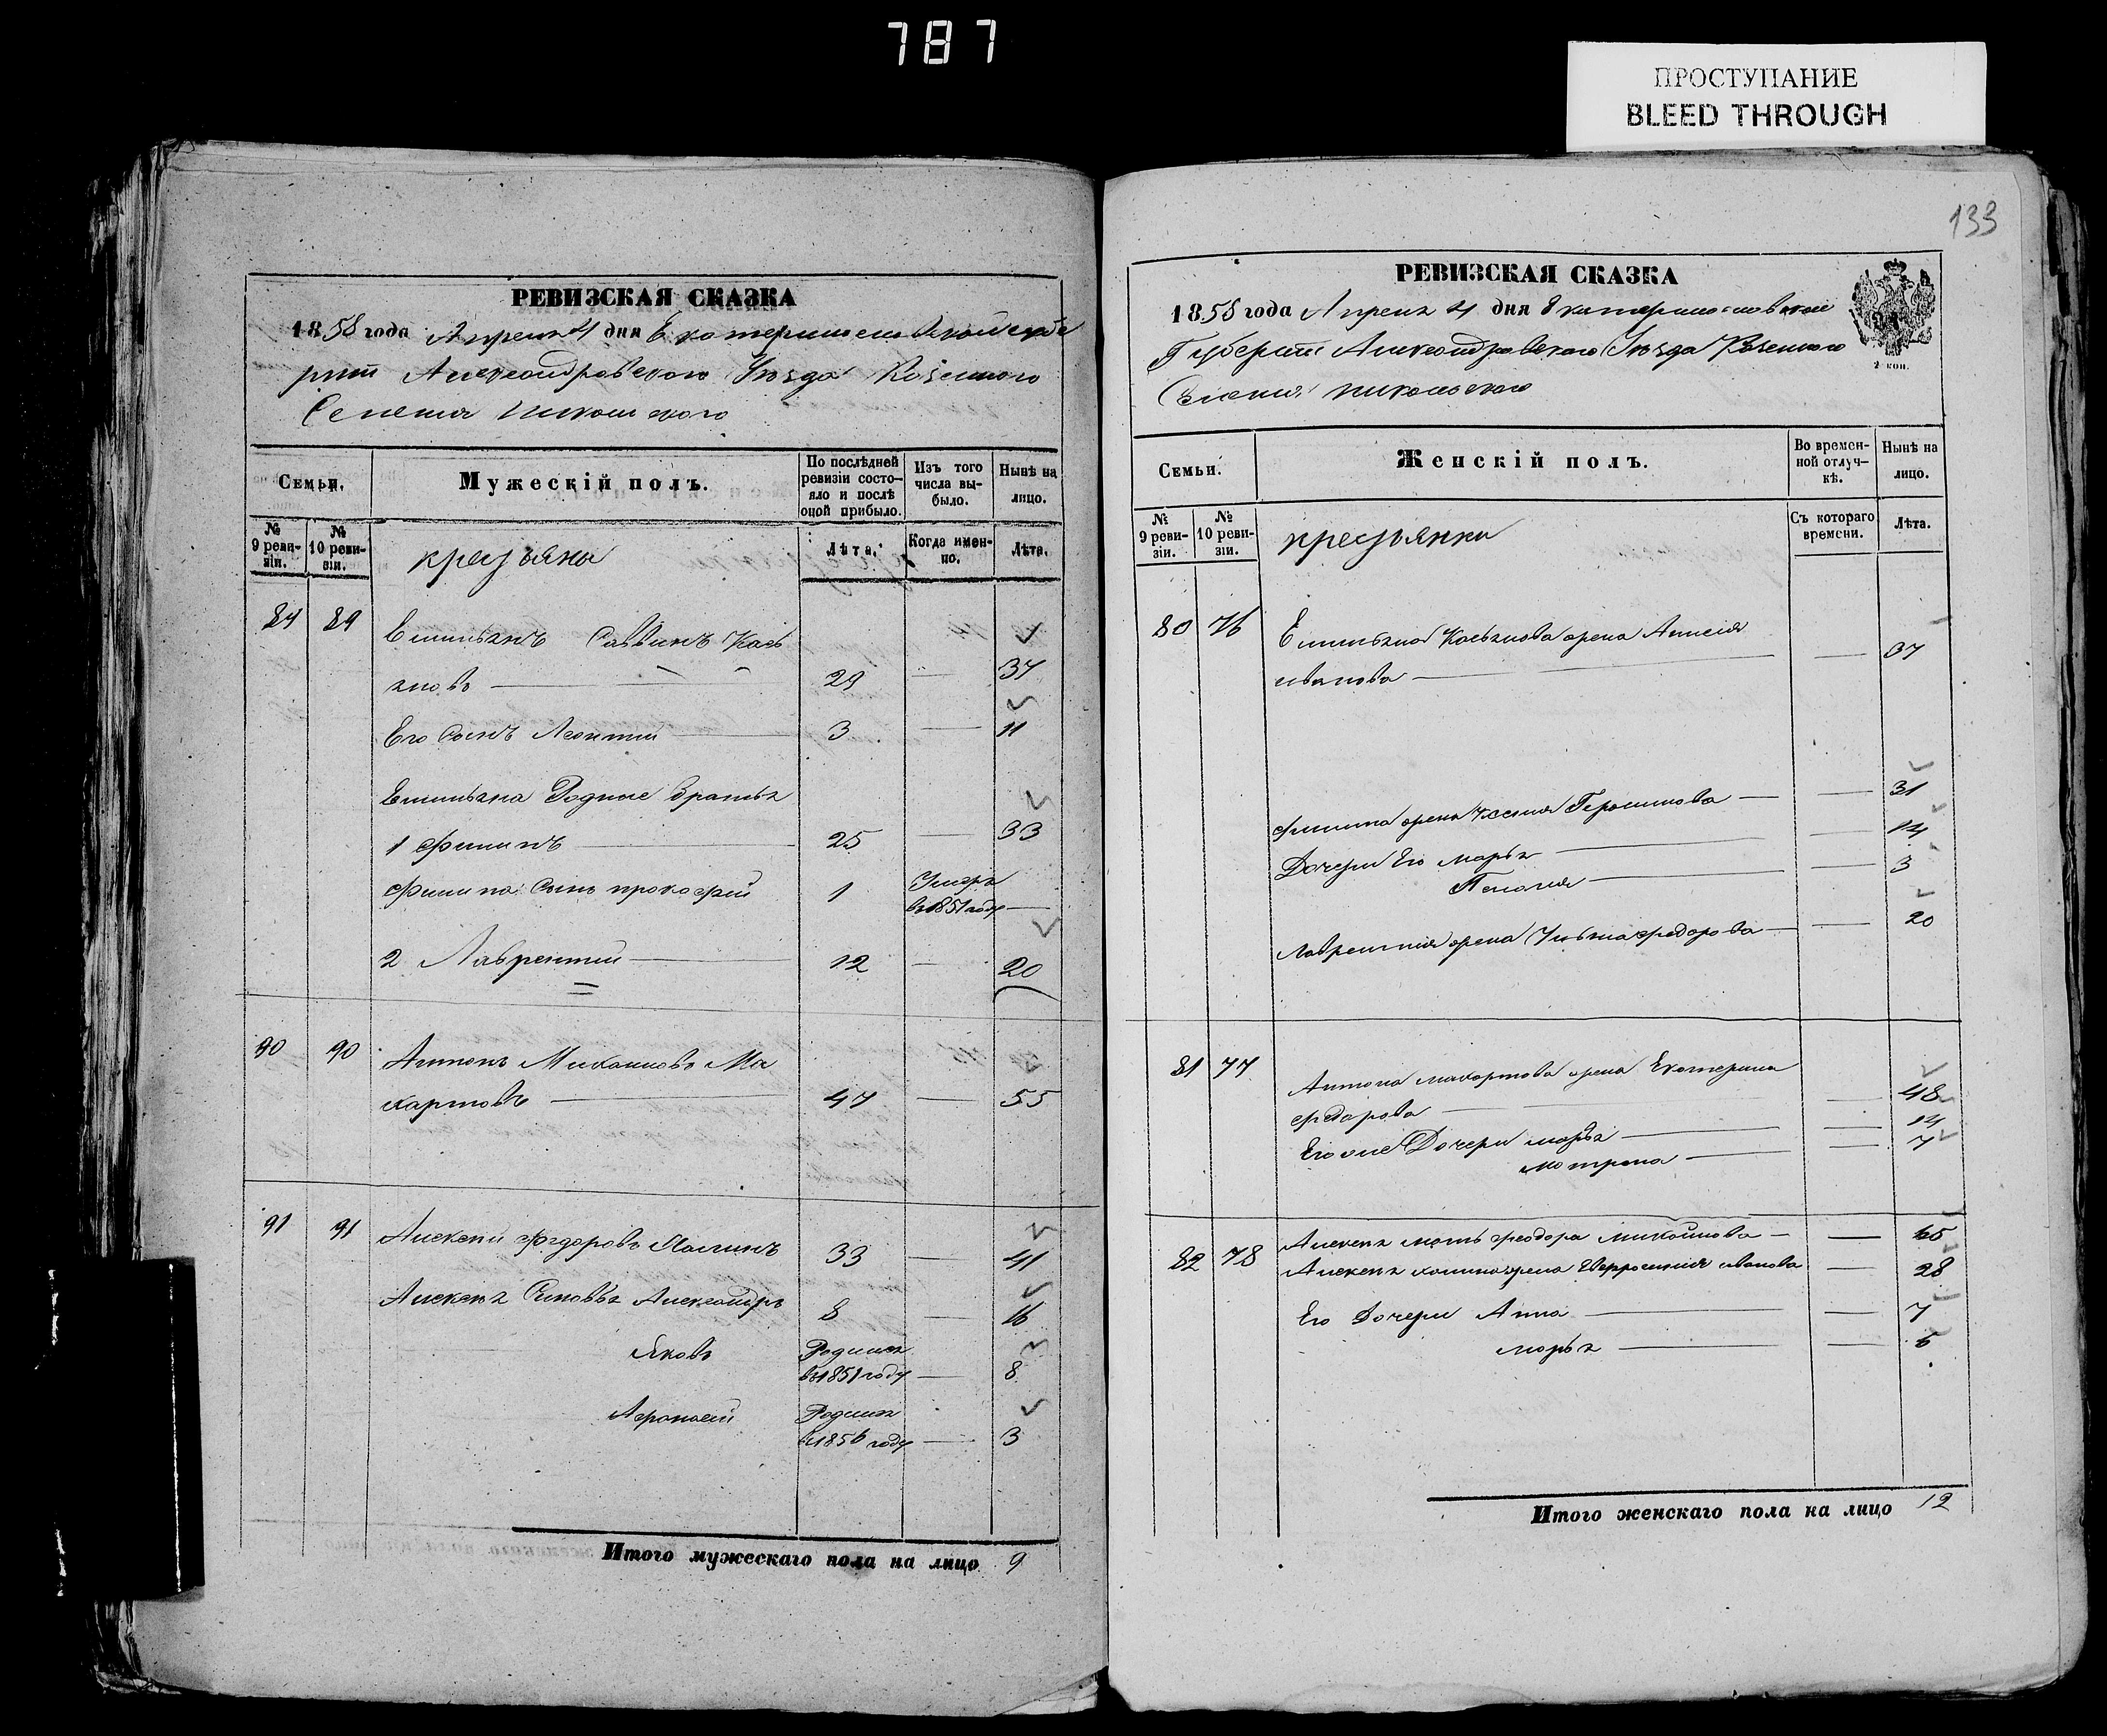 787
ПРОСТУПАНИЕ
BLEED THROUGH
РЕВИЗСКАЯ СКАЗКА
1858 года Апреля 4 дня Екатеринославской губе
рнии Александровского Уезда Казенного
Селения Никольского
Семьи.
Мужескій полъ.
По послѣдней ревизіи состо-
яло и послѣ оной прибыло.
Изъ того числа вы-
было.
Нынѣ на лицо.
№ 9 реви-
зіи.
№ 10 реви-
зіи.
крестьяне
Лѣта.
Когда имен-
но.
Лѣта.
84 89 Емильянъ Саввинъ Кась
яновъ 29 — 37
Его Сынъ Леонтий 3 — 11
Емильяна Родные братья
1 Филипъ 25 — 33
Филипа Сынъ прокофий 1 Умеръ в 1851 году —
2 Лаврентий 12 — 20
90 90 Антонъ Михайловъ Ма
хартовъ 47 — 55
91 91 Алексей Федоровъ 33 — 41
Алексея Сыновья Александръ 8 — 16
Яковъ Родился в 1851 году — 8
Афонасий Родился в 1856 году — 3
Итого мужескаго пола на лицо 9
133
РЕВИЗСКАЯ СКАЗКА
1858 года Апреля 4 дня Екатеринославской
Губернии Александровского Уезда Казенного
Селения Никольского
2 коп.
Семьи.
Женскій полъ.
Во времен-
ной отлуч-
кѣ.
Нынѣ на лицо.
№ 9 реви-
зіи.
№ 10 реви-
зіи.
крестьянки
Съ котораго времени.
Лѣта.
80 76 Емильяна Касьянова жена
иванова — 37
Филипа жена — 31
Дочери Его марья — 14
Пелагия — 3
Лаврентия жена Ульяна федорова — 20
81 77 Антона махартова жена Екатерина
федорова — 48
Его же Дочери марья — 14
мотрена — 7
82 78 Алексея мать феодора михайлова — 65
Алексея жена Евфросиния иванова — 28
Его Дочери Анна — 7
марья — 5
Итого женскаго пола на лицо 12